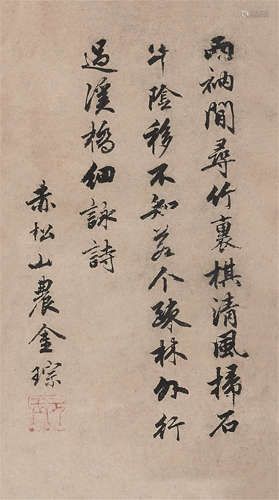 兩衲閒尋竹裏棋清風掃石
牛陰移不知若个疎林外行
過溪橋細詠詩
赤松山農金琮